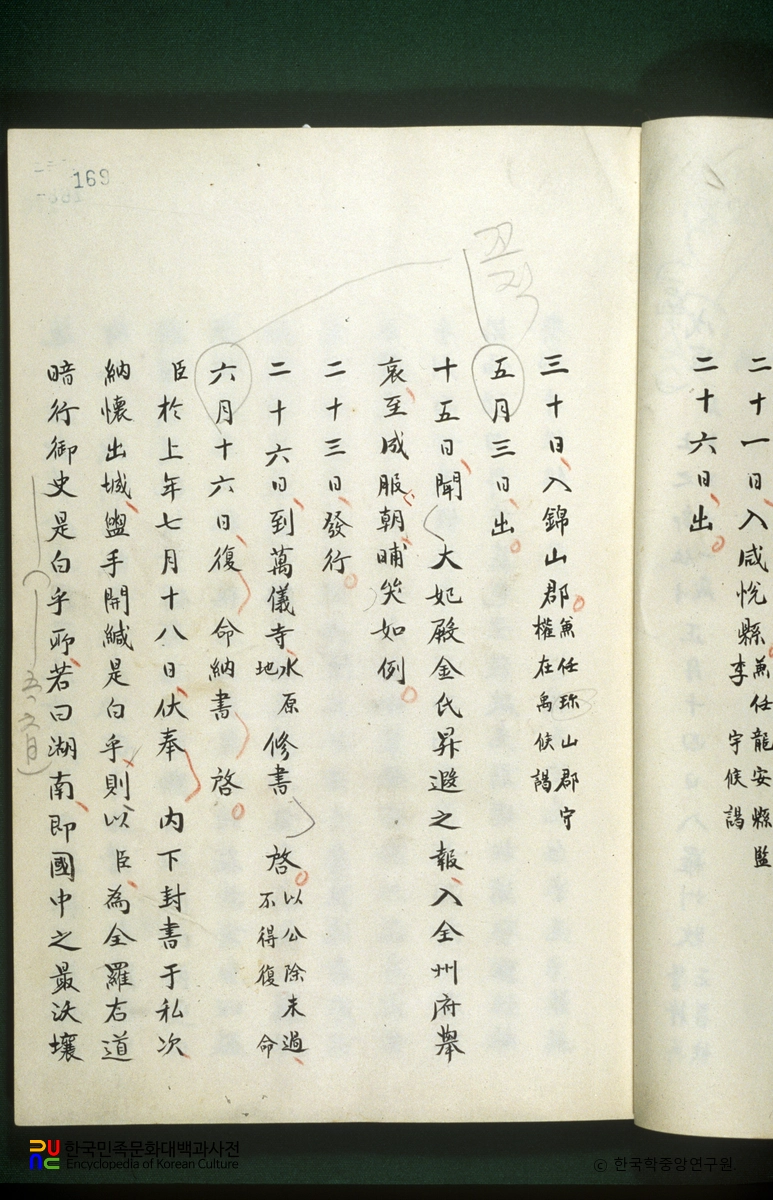 二十一日入咸悅縣兼任龍安縣監
李 宇候謁
二十六日出
三十日入錦山郡兼任珎山郡守
權在禹候謁
五月三日出
十五日聞 大妃殿金氏昇遐之報入全州府擧
哀至成服朝晡哭如例
二十三日發行
二十六日到萬儀寺水原地修書 啓以公除未過不得復 命
六月十六日復 命納書 啓
臣於上年七月十八日伏奉 內下封書于私次
納懷出城盥手開緘是白乎則以臣爲全羅右道
暗行御史是白乎所若曰湖南卽國中之最沃壤
169
五、六月)
한국민족문화대백과사전
Encyclopedia of Korean Culture
© 한국학중앙연구원